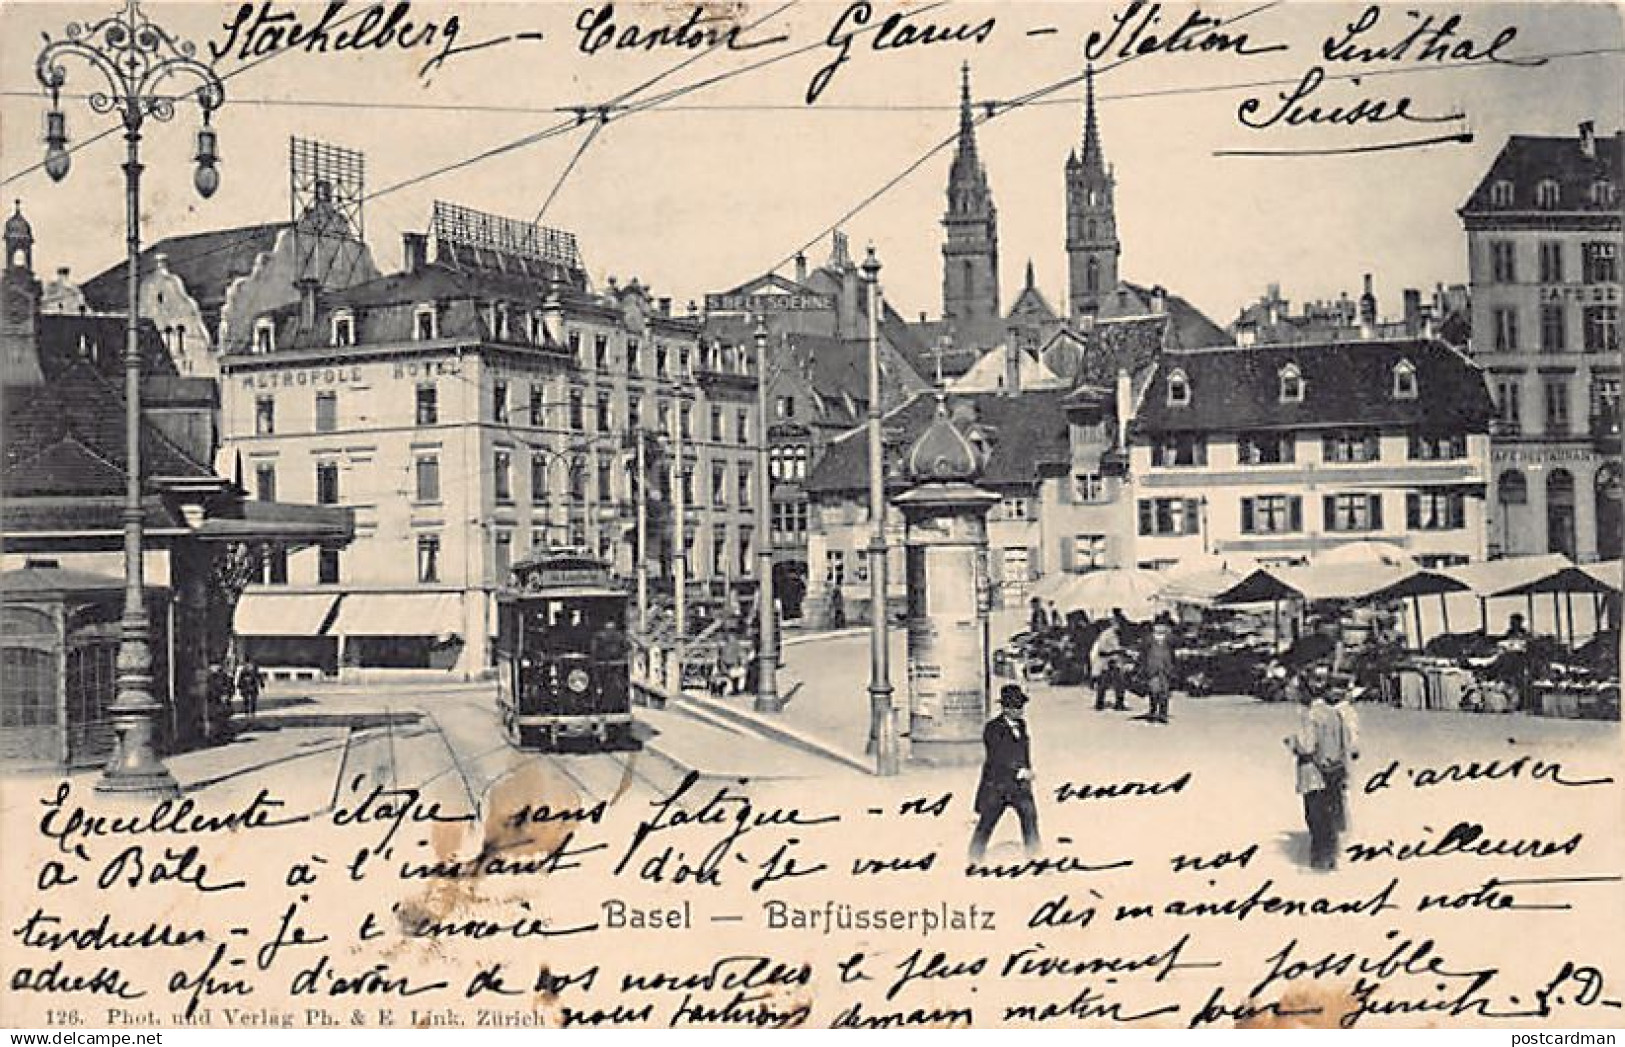 Stachelberg - Canton Glarus - Station Linthal
Suisse
S. BELL SOEHNE
METROPOLE HOTEL
CAFE RESTAURANT
Excellente étape sans fatigue - ns venons d'arriver
à Bâle à l'instant d'où je vous envoie nos meilleures
tendresses - je t'envoie dès maintenant notre
Basel — Barfüsserplatz
adresse afin d'avoir de vos nouvelles le plus vivement possible
nous partirons demain matin pour Zurich. L.D-
126. Phot. und Verlag Ph. & E. Link, Zürich
postcardman